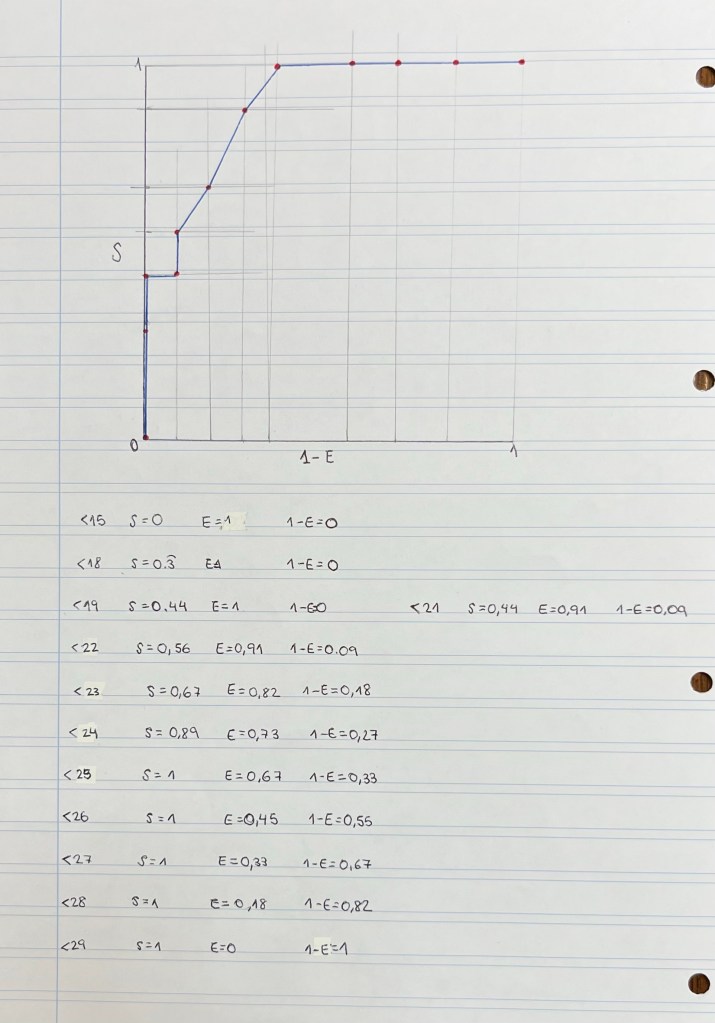 1
S
0
1-E
1
<15 S=0 E=1 1-E=0
<18 S=0.3̄ E1 1-E=0
<19 S=0.44 E=1 1-E0 <21 S=0,44 E=0,91 1-E=0,09
<22 S=0,56 E=0,91 1-E=0.09
<23 S=0,67 E=0,82 1-E=0,18
<24 S=0,89 E=0,73 1-E=0,27
<25 S=1 E=0,67 1-E=0,33
<26 S=1 E=0,45 1-E=0,55
<27 S=1 E=0,33 1-E=0,67
<28 S=1 E=0,18 1-E=0,82
<29 S=1 E=0 1-E=1